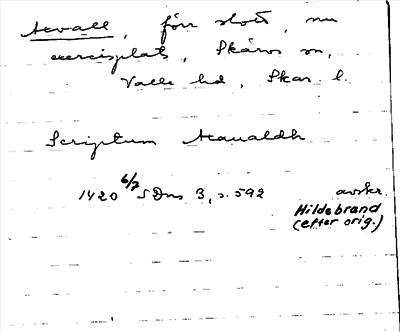 Axvall, förr slott, nu
exercisplats, Skärvs sn,
Valle hd, Skar. l.
Scriptum Axaualdh
1420 6/7 SDns 3, s. 592 avskr.
Hildebrand
(efter orig.)